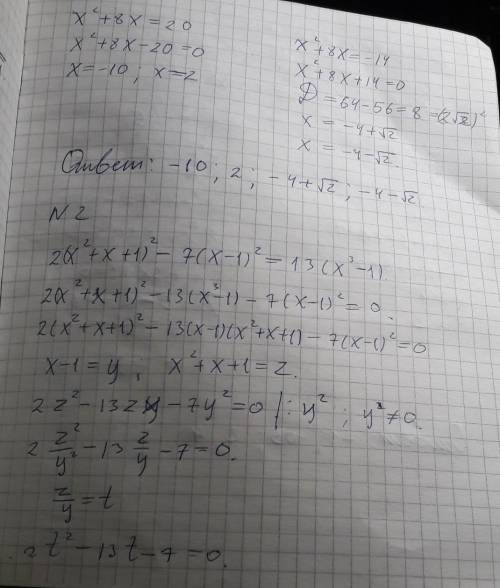 x²+8x=20
x²+8x-20=0
x=-10; x=2
x²+8x=-14
x²+8x+14=0
D=64-56=8=(2√2)²
x=-4+√2
x=-4-√2.
Ответ: -10; 2; -4+√2; -4-√2
N2
2(x²+x+1)²-7(x-1)²=13(x³-1)
2(x²+x+1)²-13(x³-1)-7(x-1)²=0.
2(x²+x+1)²-13(x-1)(x²+x+1)-7(x-1)²=0
x-1=y; x²+x+1=z.
2z²-13zy-7y²=0 |:y²; y²≠0.
2 z²/y²-13 z/y-7=0.
z/y=t
2t²-13t-7=0.